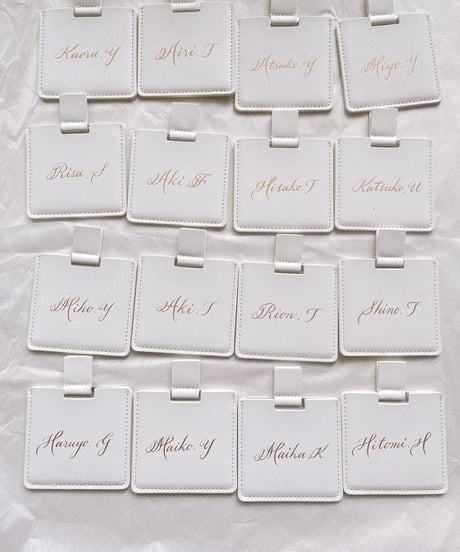 Kaoru. Y
Airi. T
Atsuko. Y
Miyo. Y
Risa. S
Aki. F
Hisako T
Katsuko. U
Miho. Y
Aki. T
Rion. T
Shino. T
Haruyo. G
Maiko. Y
Maika. K
Hitomi. H